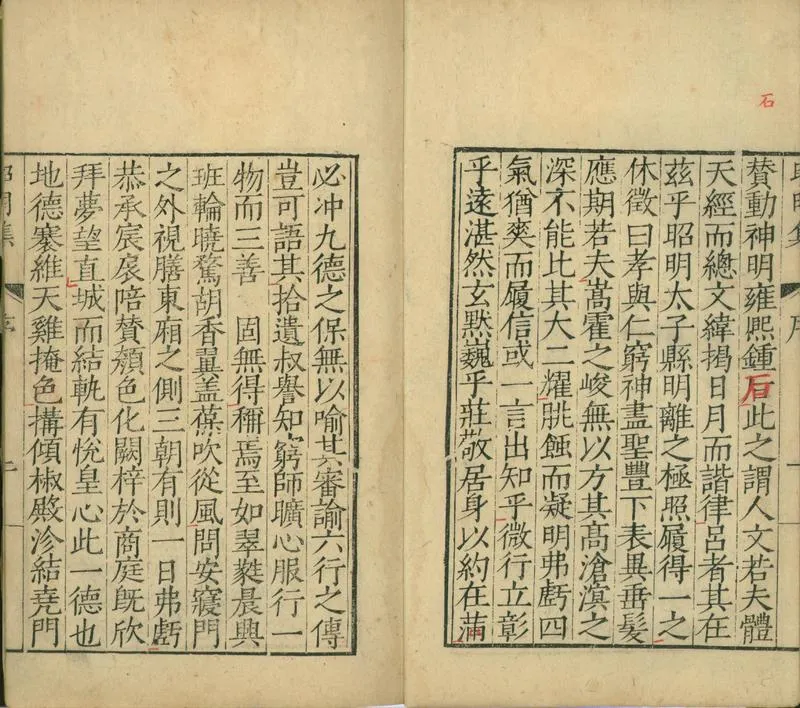 石
昭明集 序 一
贊動神明雍熈鍾后此之謂人文若夫體
天經而總文緯揭日月而諧律呂者其在
茲乎昭明太子縣明離之極照履得一之
休徵曰孝與仁窮神盡聖豐下表異垂髮
應期若夫嵩霍之峻無以方其高滄溟之
深不能比其大二耀朓蝕而凝明弗虧四
氣猶爽而履信或一言出知乎微行立彰
乎遠湛然玄默巍乎莊敬居身以約在蒲
必冲九德之保無以喻其審諭六行之傳
豈可語其拾遺叔譽知窮師曠心服行一
物而三善 固無得稱焉至如翠蕤晨興
班輪曉騖胡香翼盖葆吹從風問安寢門
之外視膳東廂之側三朝有則一日弗虧
恭承宸扆陪贊頟色化闕梓於商庭旣欣
拜夢望直城而結軌有悅皇心此一德也
地德褰維天雞掩色搆傾椒殿沴結堯門
昭明集 序 二